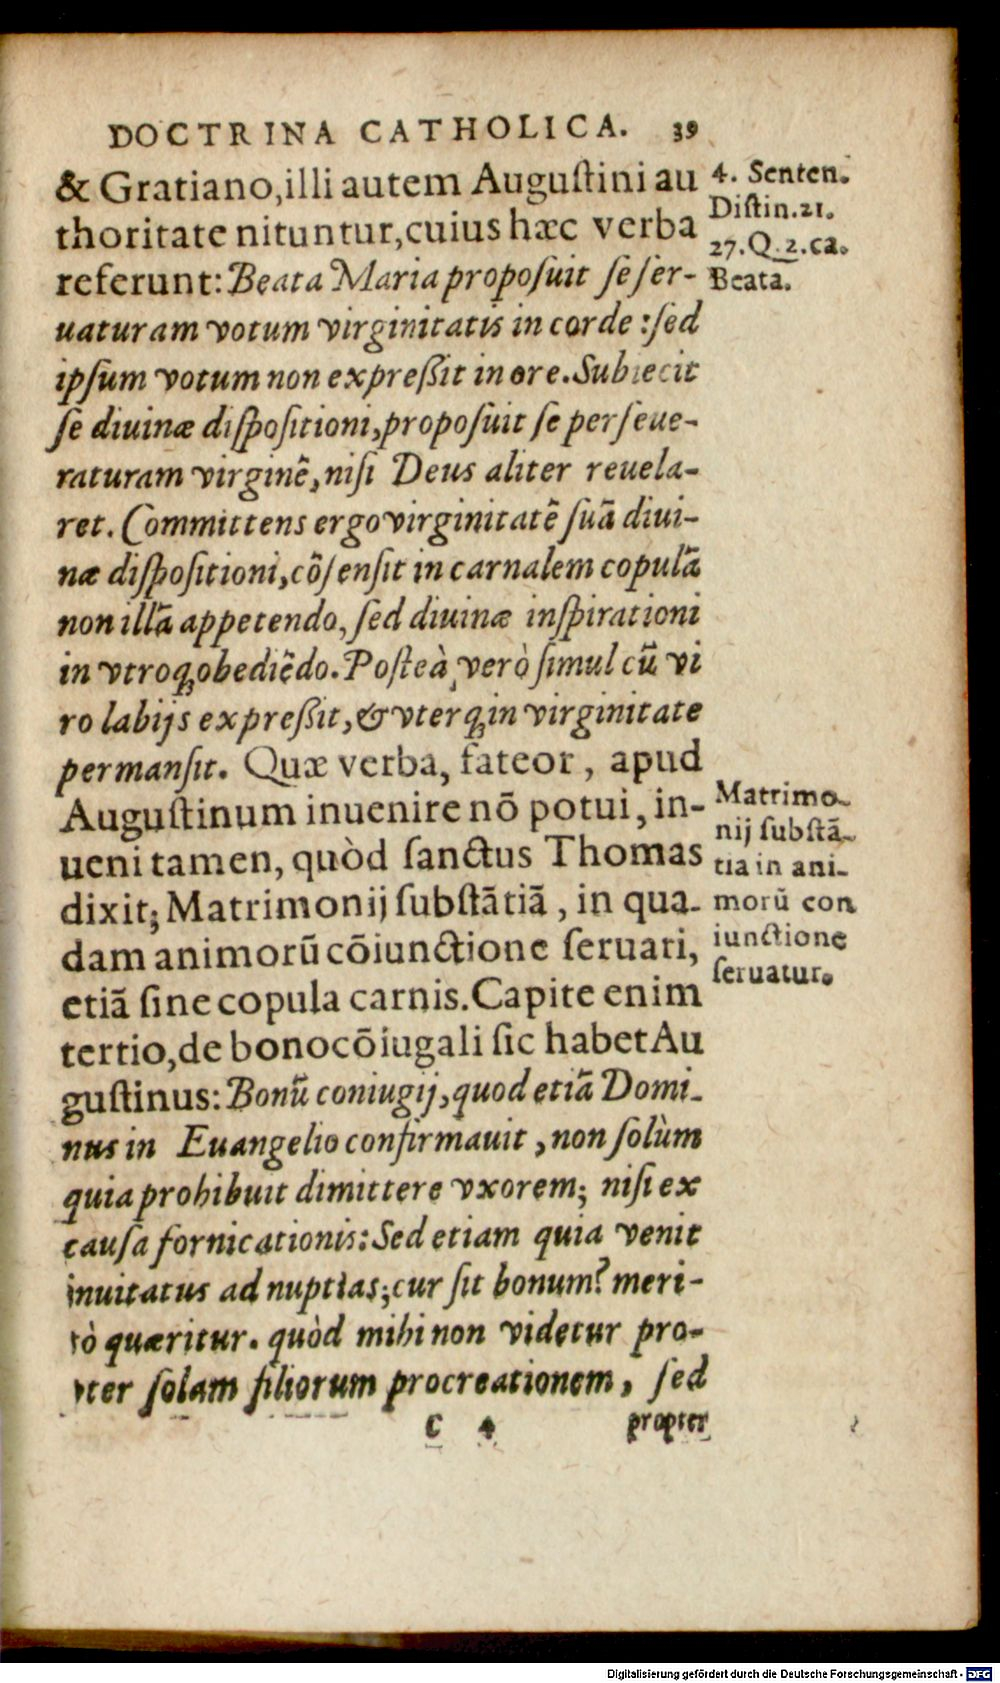 DOCTRINA CATHOLICA. 39
& Gratiano, illi autem Auguſtini au
thoritate nituntur, cuius hæc verba
referunt: Beata Maria propoſuit ſe ſer-
uaturam votum virginitatis in corde : ſed
ipſum votum non expreßit in ore. Subiecit
ſe diuinæ diſpoſitioni, propoſuit ſe perſeue-
raturam virginẽ, niſi Deus aliter reuela-
ret. Committens ergo virginitatẽ ſuã diui-
næ diſpoſitioni, cõſenſit in carnalem copulã
non illã appetendo, ſed diuinæ inſpirationi
in vtroq; obediẽdo. Poſteà verò ſimul cũ vi
ro labijs expreßit, & vterq; in virginitate
permanſit. Quæ verba, fateor, apud
Auguſtinum inuenire nõ potui, in-
ueni tamen, quòd ſanctus Thomas
dixit; Matrimonij ſubſtãtiã, in qua-
dam animorũ cõiunctione ſeruari,
etiã ſine copula carnis. Capite enim
tertio, de bono cõiugali ſic habet Au
guſtinus: Bonũ coniugij, quod etiã Domi-
nus in Euangelio confirmauit, non ſolùm
quia prohibuit dimittere vxorem; niſi ex
cauſa fornicationis: Sed etiam quia venit
inuitatus ad nuptias; cur ſit bonum? meri-
tò quæritur. quòd mihi non videtur pro-
pter ſolam filiorum procreationem, ſed
C 4 propter
4. Senten.
Diſtin. 21.
27. Q. 2. ca.
Beata.
Matrimo-
nij ſubſtã-
tia in ani-
morũ con
iunctione
ſeruatur.
Digitalisierung gefördert durch die Deutsche Forschungsgemeinschaft - DFG